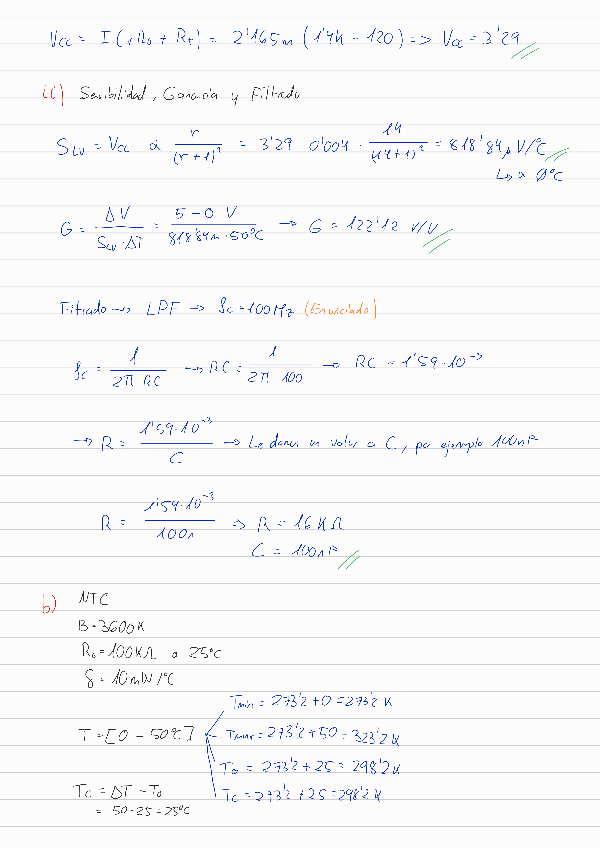 Vcc = I (rRo + Rt) = 2'165m (1'4K - 120) => Vcc = 3'29
ii) Sensibilidad, Ganancia y Filtrado
S_LV = Vcc α r/(r+1)² = 3'29 0'004 · 14/(14+1)² = 818'84µV/°C
↳ a 0°C
G = ΔV/(S_LV·ΔT) = (5-0 V)/(818'84m·50°C) → G = 122'12 V/V
Filtrado → LPF → fc = 100Hz (Enunciado)
fc = 1/(2π RC) → RC = 1/(2π 100) → RC = 1'59·10⁻³
→ R = 1'59·10⁻³/C → Le damos un valor a C, por ejemplo 100nF
R = 1'59·10⁻³/100n → R = 16KΩ
C = 100nF
b) NTC
B = 3600K
Ro = 100KΩ a 25°C
δ = 10mW/°C
Tmin = 273'2 + 0 = 273'2 K
T = [0 - 50°C]
Tmax = 273'2 + 50 = 323'2 K
To = 273'2 + 25 = 298'2 K
Tc = ΔT - To
Tc = 273'2 + 25 = 298'2 K
= 50 - 25 = 25°C